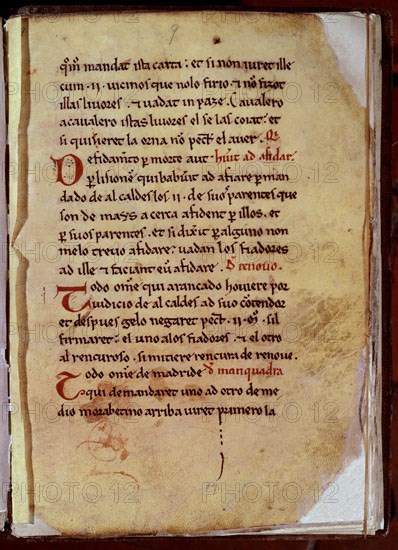 9
qm̄ mandat ista carta: et si non iuret ille
cum .ii. vicinos que nolo firio. & no fizot
illas livores. & vadat in paze. Cavalero
a cavalero istas livores el se las coiat: et
si quisieret la orna no pect& el aver.
De fidam̄to p̱ morte aut ad afidar.
P̱ lisione qui babuit ad afiare p̱ man
dado de alcaldes los ii. de suos parentes que
son de mays acerca afident p̱ illos. et
p̱ suos parentes. et si dixit p̱ alguno non
melo trevio afidare: vadan los fiadores
ad ille & faciant eū afidare. D̄ renovo.
Todo om̄e qui arancado hoviere por
iudicio de alcaldes ad suo cōtendor
et despues gelo negaret pect& .ii. sil
firmaret: el uno a los fiadores. & el otro
al rencuroso. si mitiere rencura de renove.
Todo om̄e de madride d̄ manquadra
qui demandaret uno ad otro de me
dio morabetino arriba iuret primero la
PHOTO 12